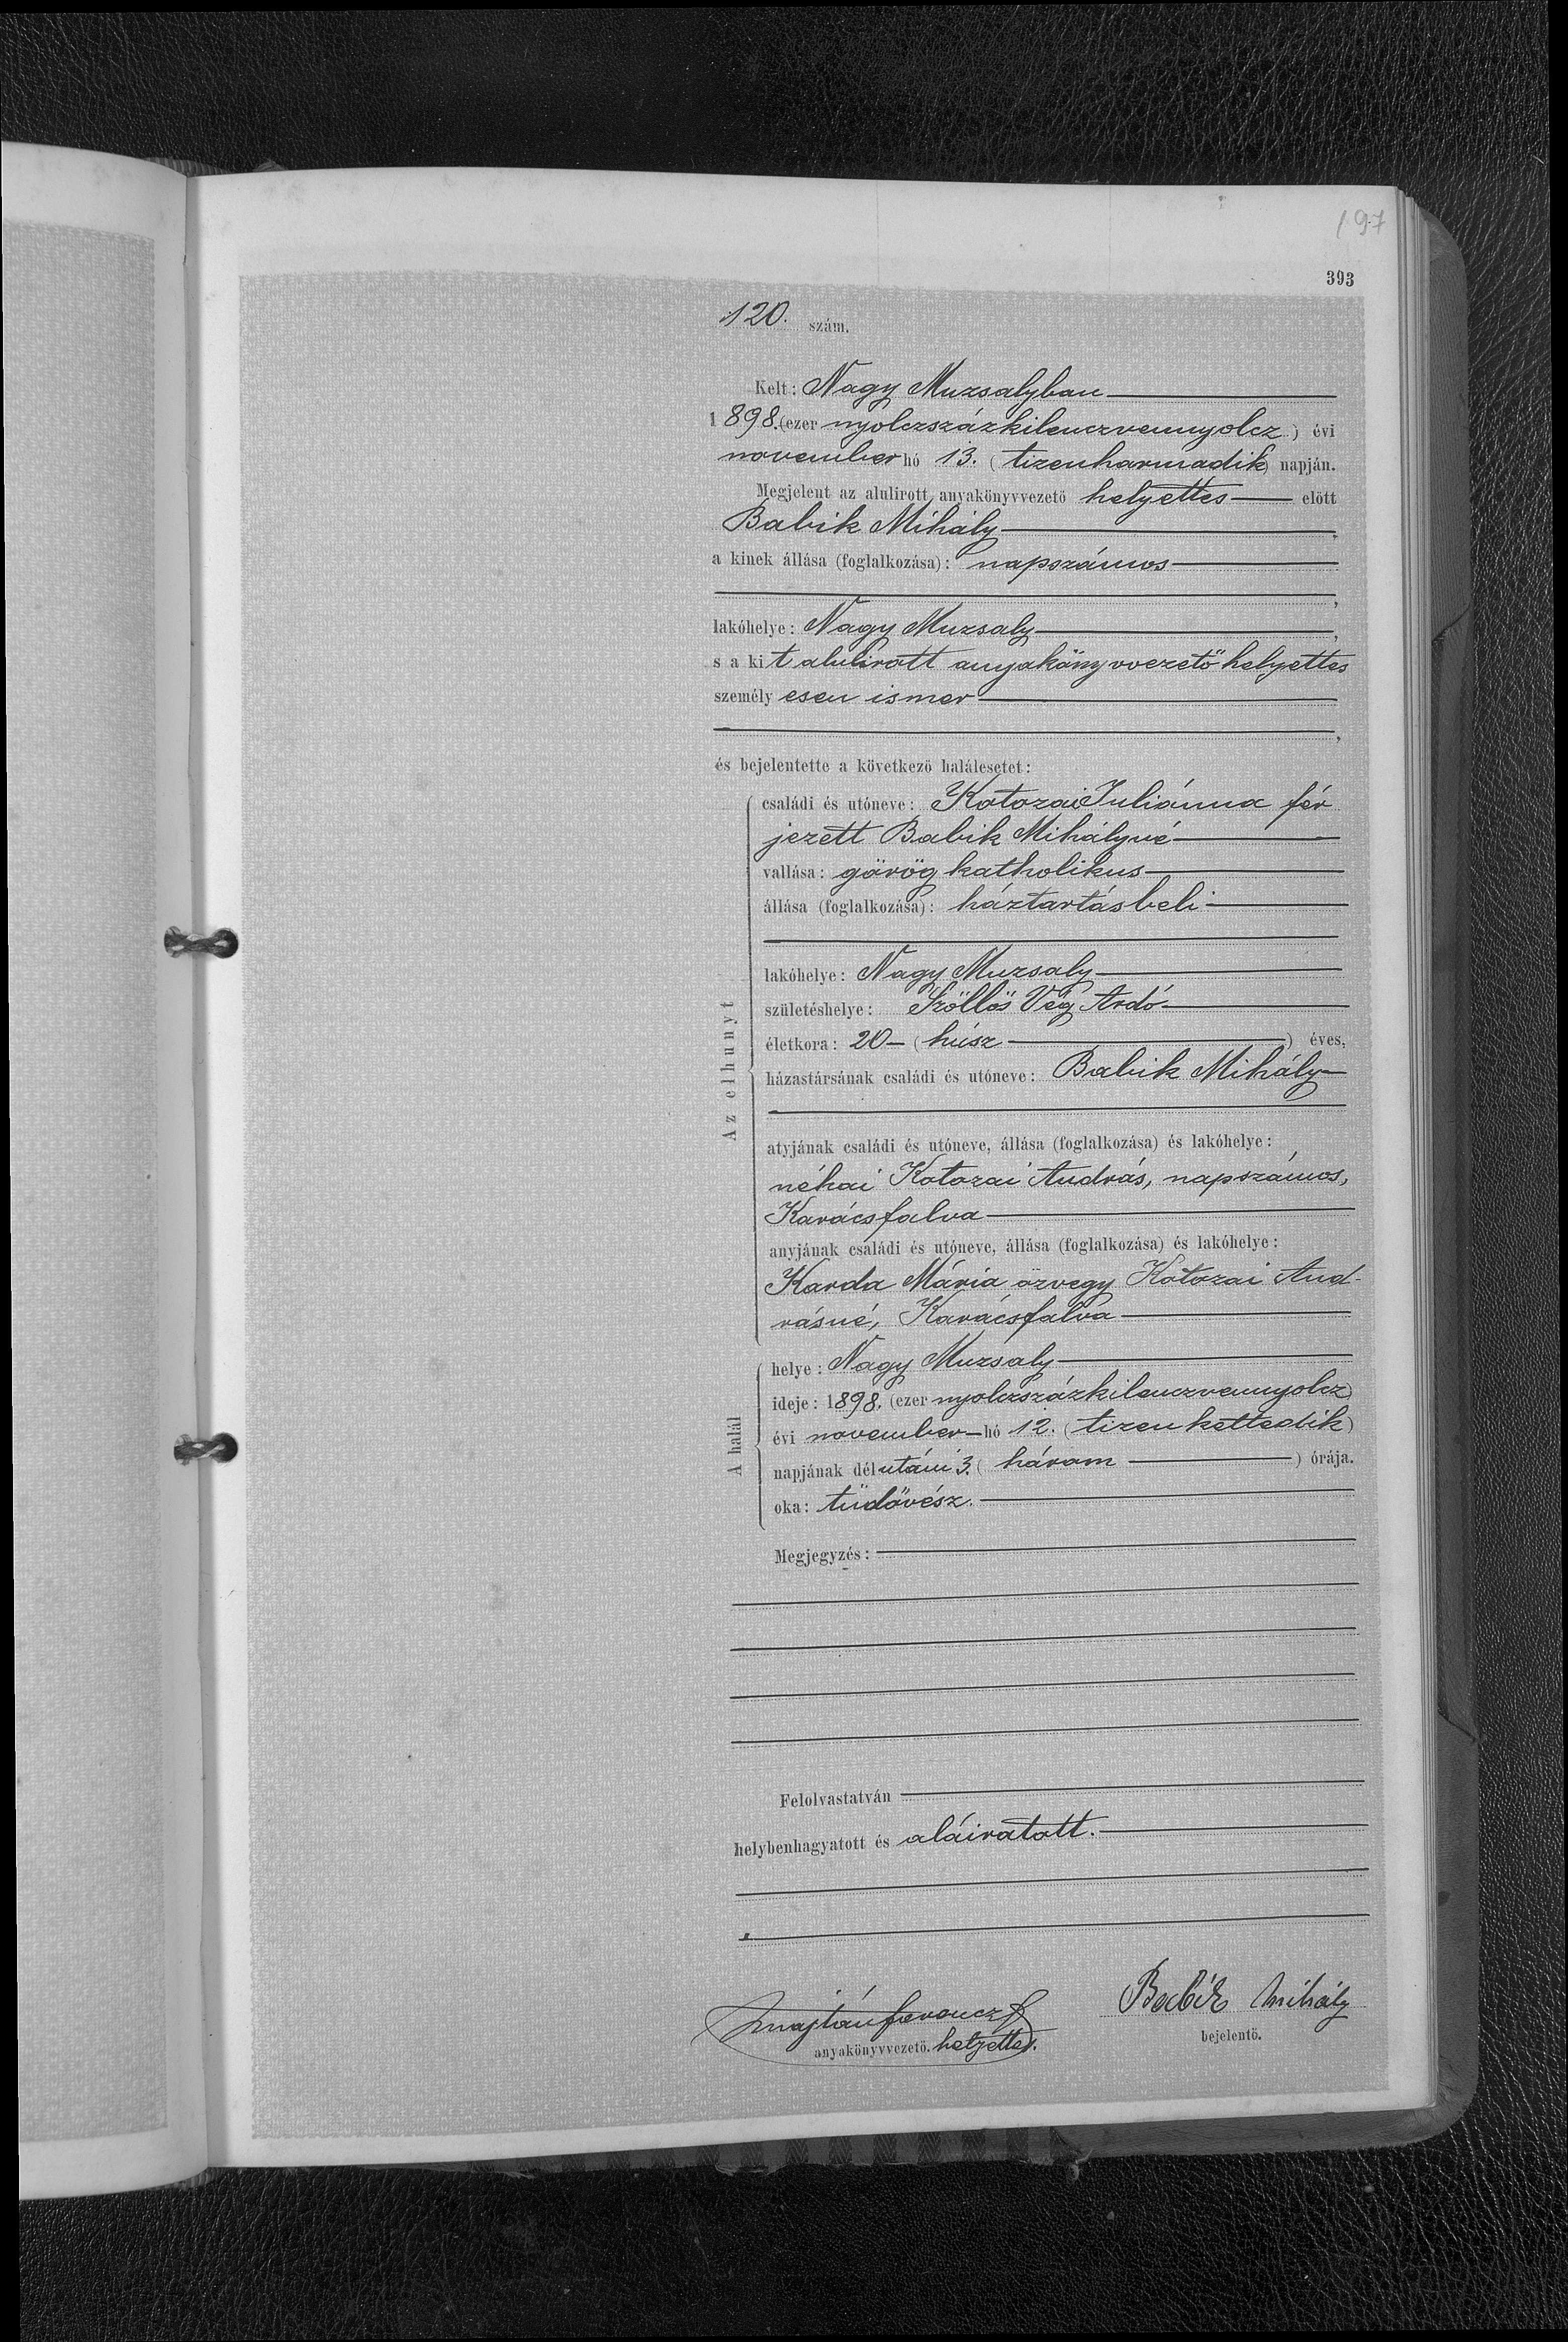 197
393
120. szám.
Kelt: Nagy Muzsalyban
1898. (ezer nyolczszázkilenczvennyolcz) évi
november hó 13. (tizenharmadik) napján.
Megjelent az alulirott anyakönyvvezető helyettes előtt
Babik Mihály,
a kinek állása (foglalkozása): napszámos
,
lakóhelye: Nagy Muzsaly,
s a kit alulirott anyakönyvvezető helyettes
személyesen ismer
,
és bejelentette a következő halálesetet:
Az elhunyt
családi és utóneve: Kotozai Juliánna fér
jezett Babik Mihályné
vallása: görög katholikus
állása (foglalkozása): háztartásbeli
lakóhelye: Nagy Muzsaly
születéshelye: Szöllös Vég Ardó
életkora: 20 – (húsz) éves,
házastársának családi és utóneve: Babik Mihály
atyjának családi és utóneve, állása (foglalkozása) és lakóhelye:
néhai Kotozai András, napszámos,
Karácsfalva
anyjának családi és utóneve, állása (foglalkozása) és lakóhelye:
Karda Mária özvegy Kotozai And-
rásné, Karácsfalva
A halál
helye: Nagy Muzsaly
ideje: 1898. (ezer nyolczszázkilenczvennyolcz)
évi november hó 12. (tizenkettedik)
napjának délutáni 3. (három) órája.
oka: tüdővész.
Megjegyzés:
Felolvastatván
helybenhagyatott és aláiratott.
anyakönyvvezető. helyettes.
Babik Mihály
bejelentő.